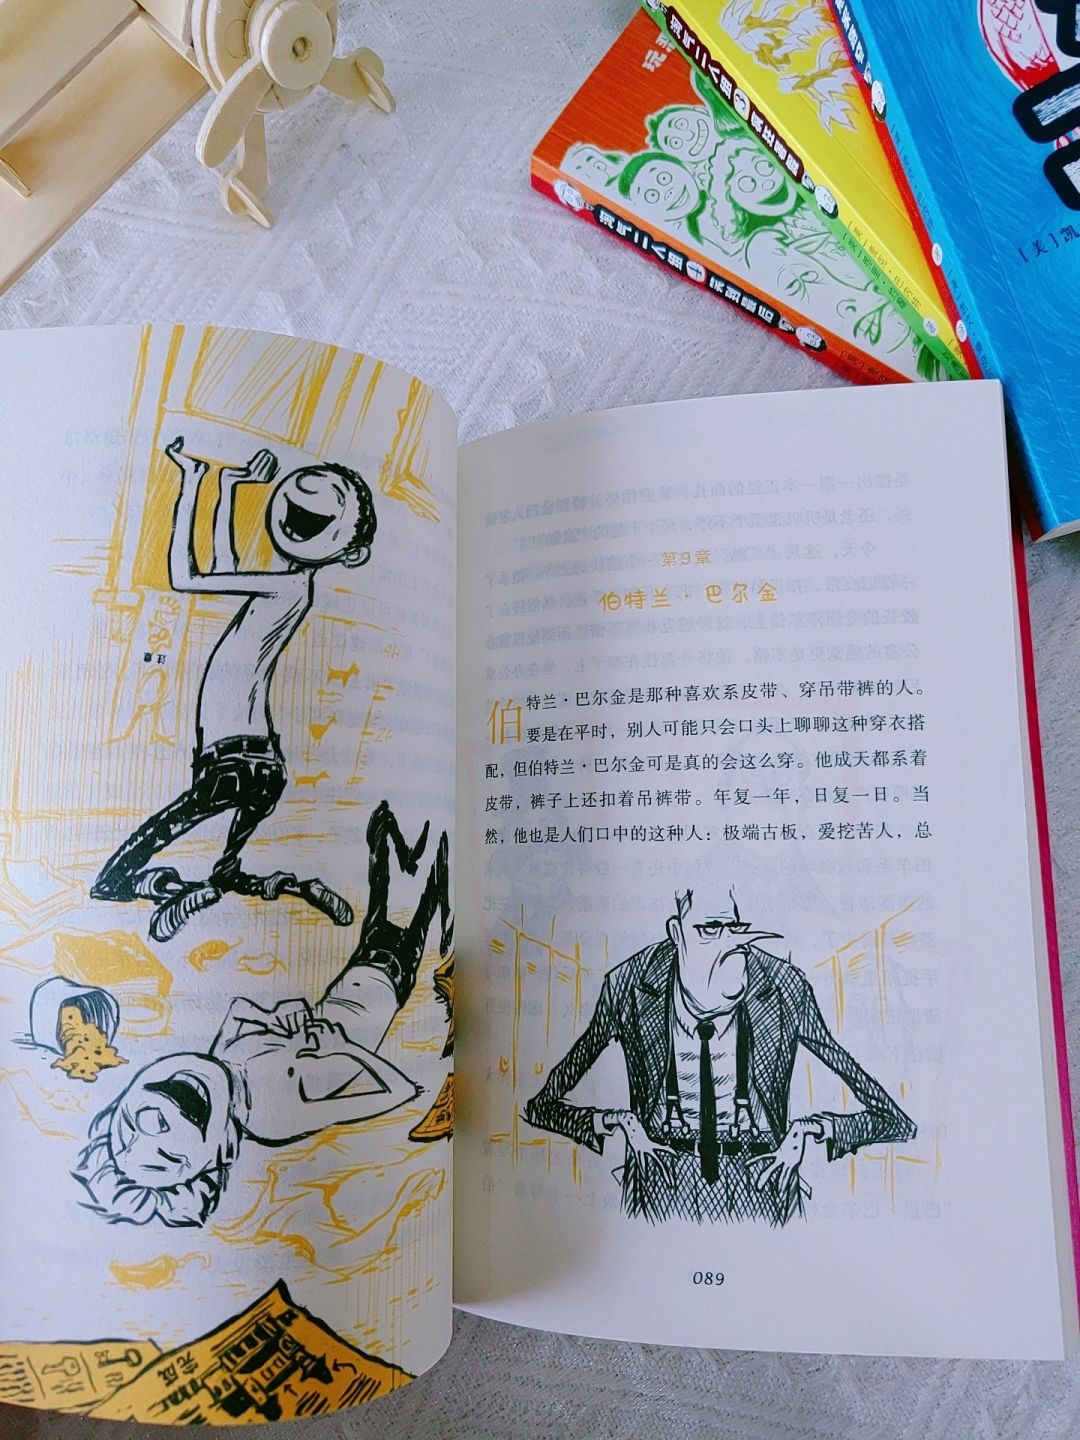 淘气二人组
4
笑到最后
淘气二人组
3
[美]凯
注意
第9章
伯特兰·巴尔金
伯特兰·巴尔金是那种喜欢系皮带、穿吊带裤的人。
要是在平时，别人可能只会口头上聊聊这种穿衣搭
配，但伯特兰·巴尔金可是真的会这么穿。他成天都系着
皮带，裤子上还扣着吊裤带。年复一年，日复一日。当
然，他也是人们口中的这种人：极端古板，爱挖苦人，总
089
完成